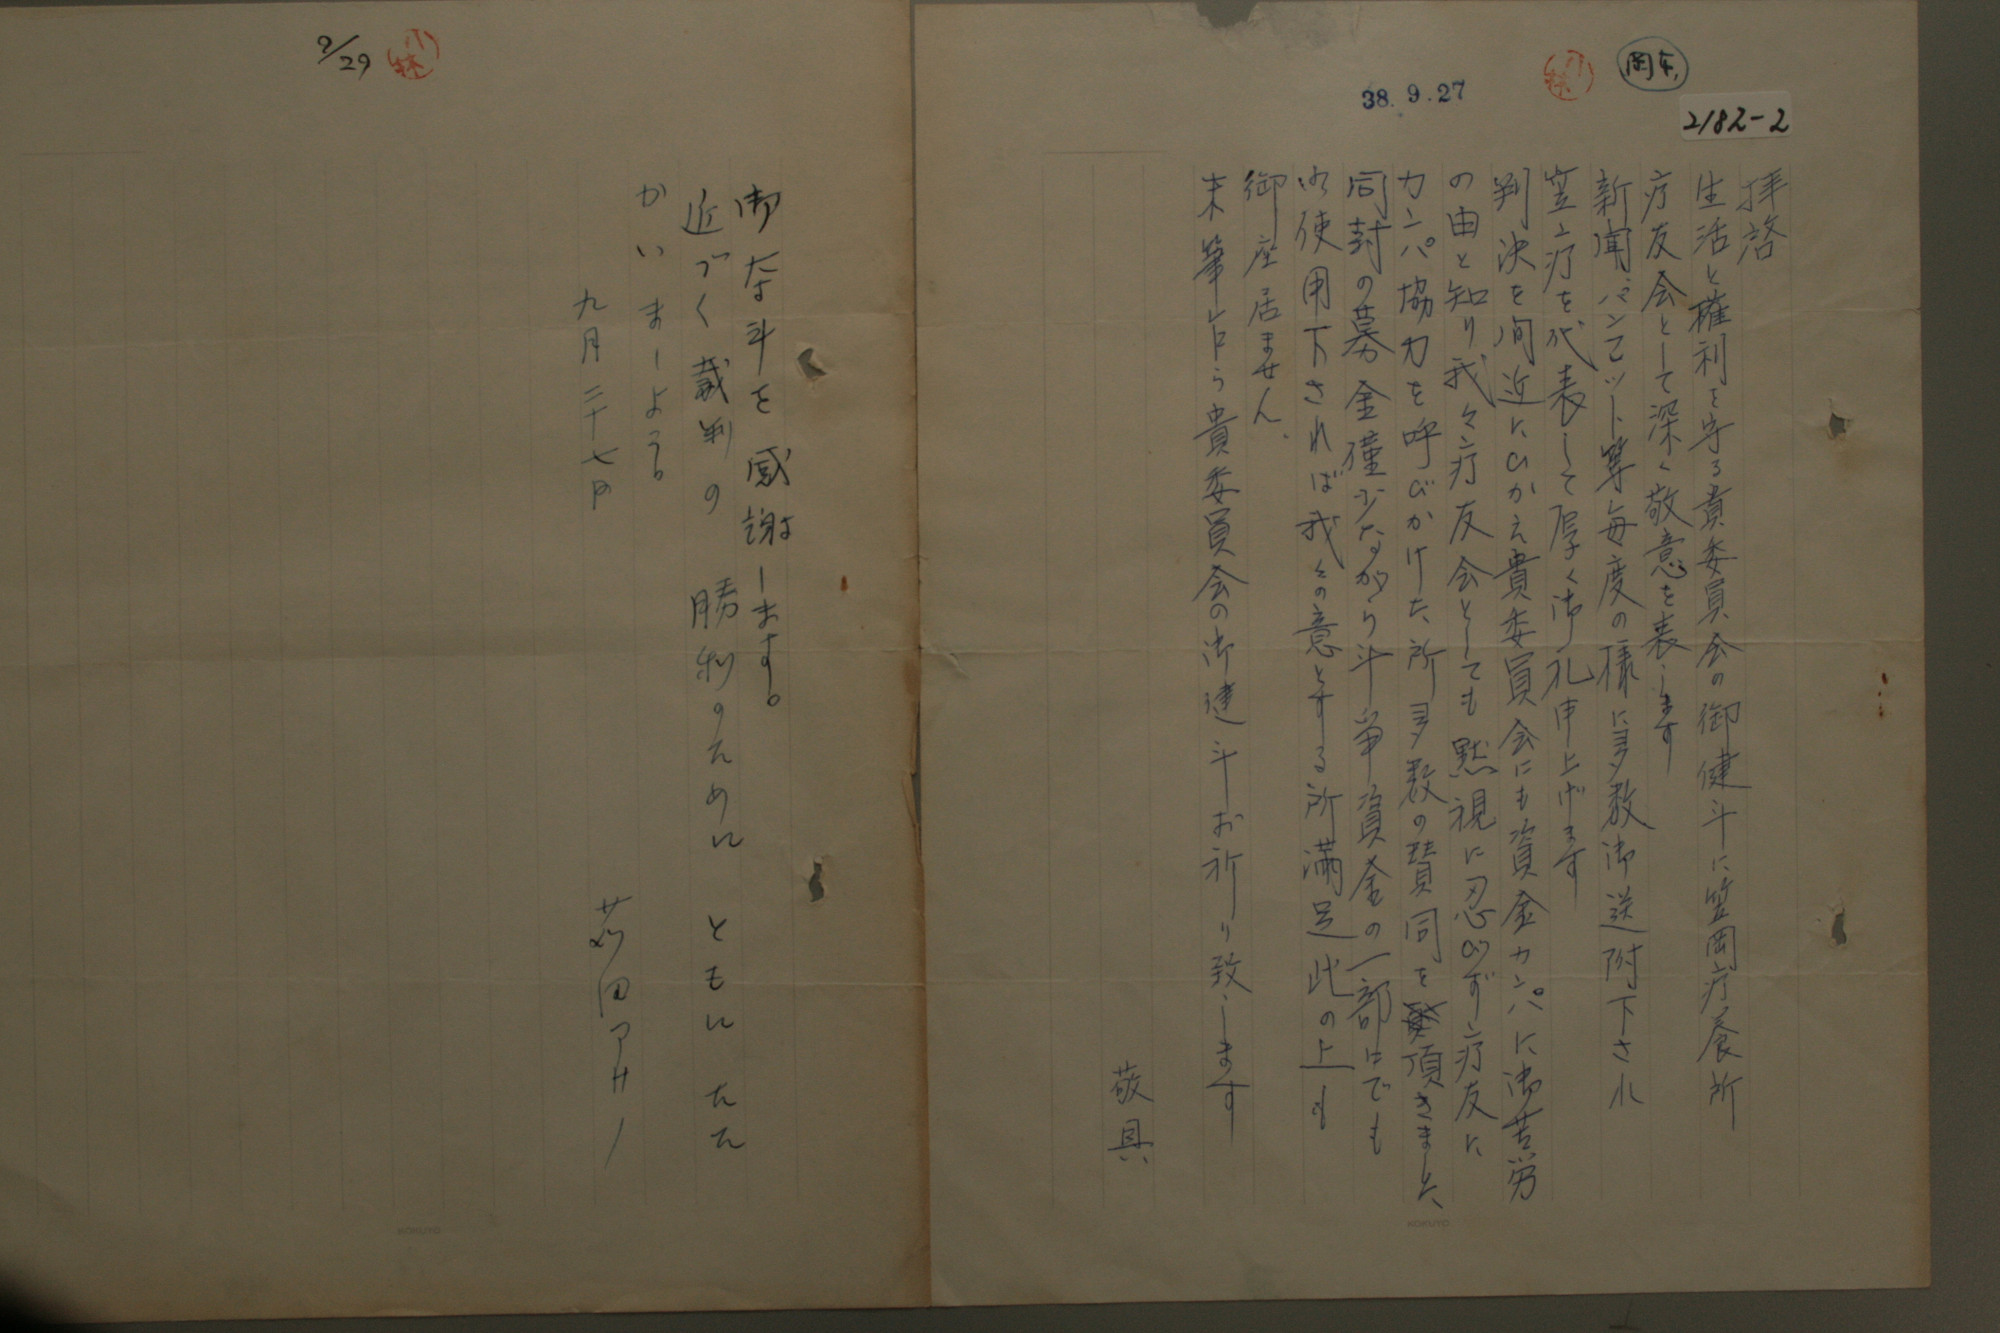 38.9.27
小林
岡本
2182-2
拝啓
生活と権利を守る貴委員会の御健斗に笠岡療養所
療友会として深く敬意を表します
新聞、パンフレット等毎度の様に多数御送附下され
笠岡療を代表して厚く御礼申上げます
判決を間近にひかえ貴委員会にも資金カンパに御苦労
の由と知り我々療友会としても黙視に忍びず療友に
カンパ協力を呼びかけた所多数の賛同を頂きました、
同封の募金僅少ながら斗争資金の一部にでも
御使用下されれば我々の意とする所満足此の上も
御座居ません、
末筆乍ら貴委員会の御健斗お祈り致します
敬具
KOKUYO
9/29
小林
近づく裁判の勝利のために ともにたた
かいましょう。
九月二十七日
KOKUYO